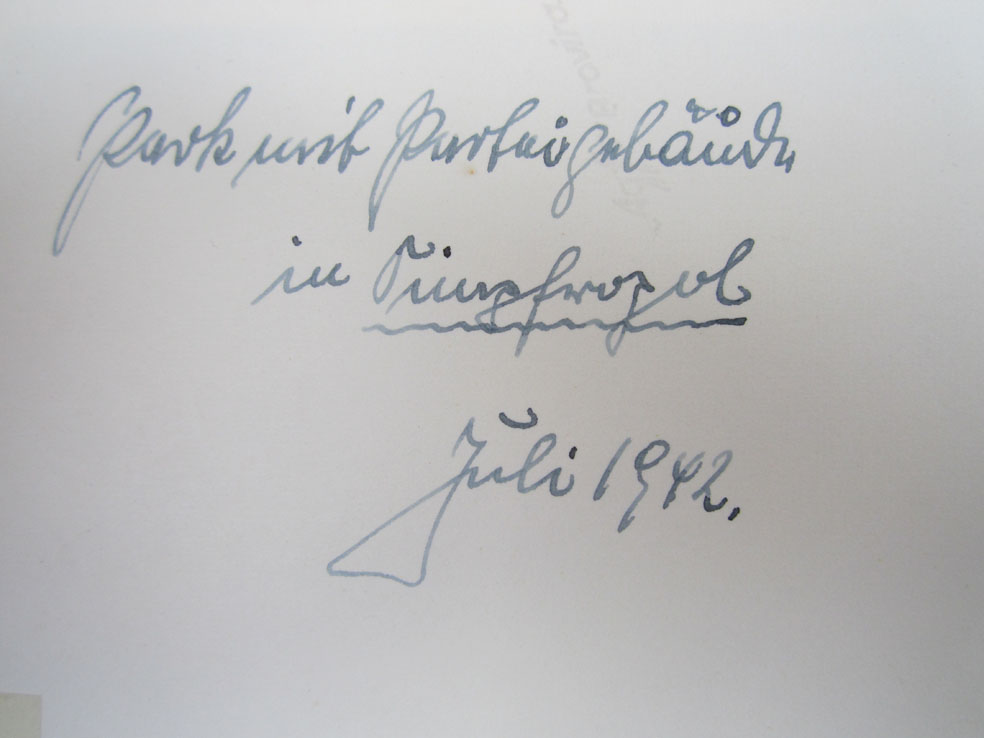 Park mit Parteigebäude
in Simpferopol
Juli 1942.